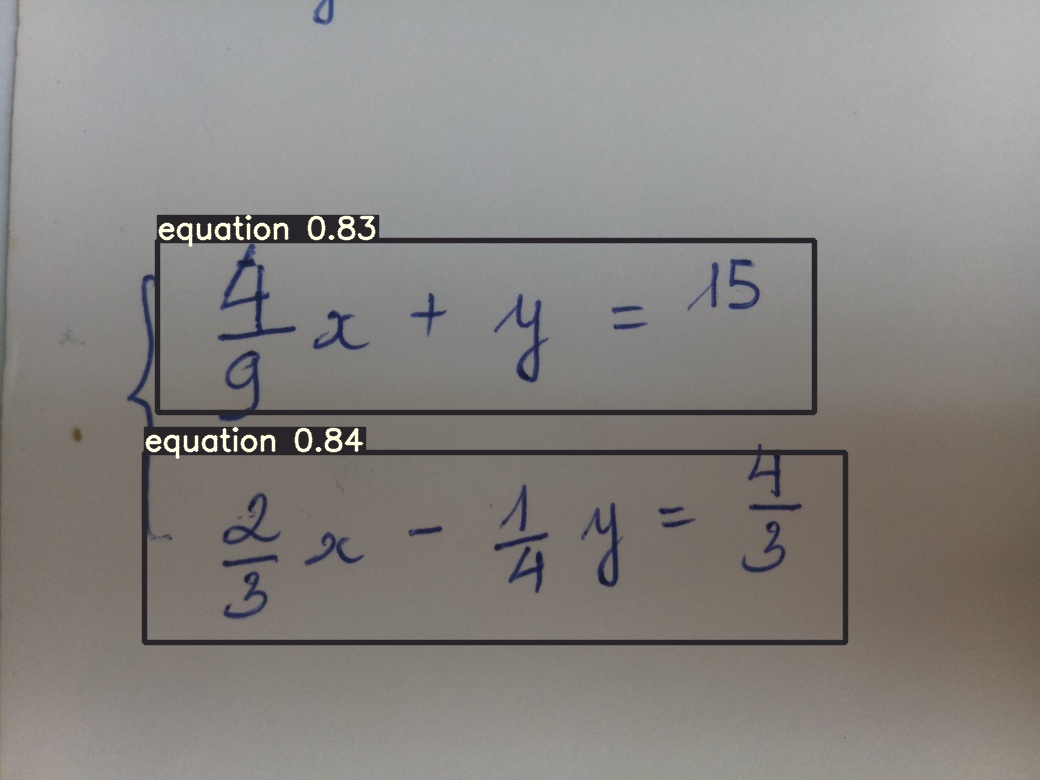 equation 0.83
4/9 x + y = 15
equation 0.84
2/3 x - 1/4 y = 4/3